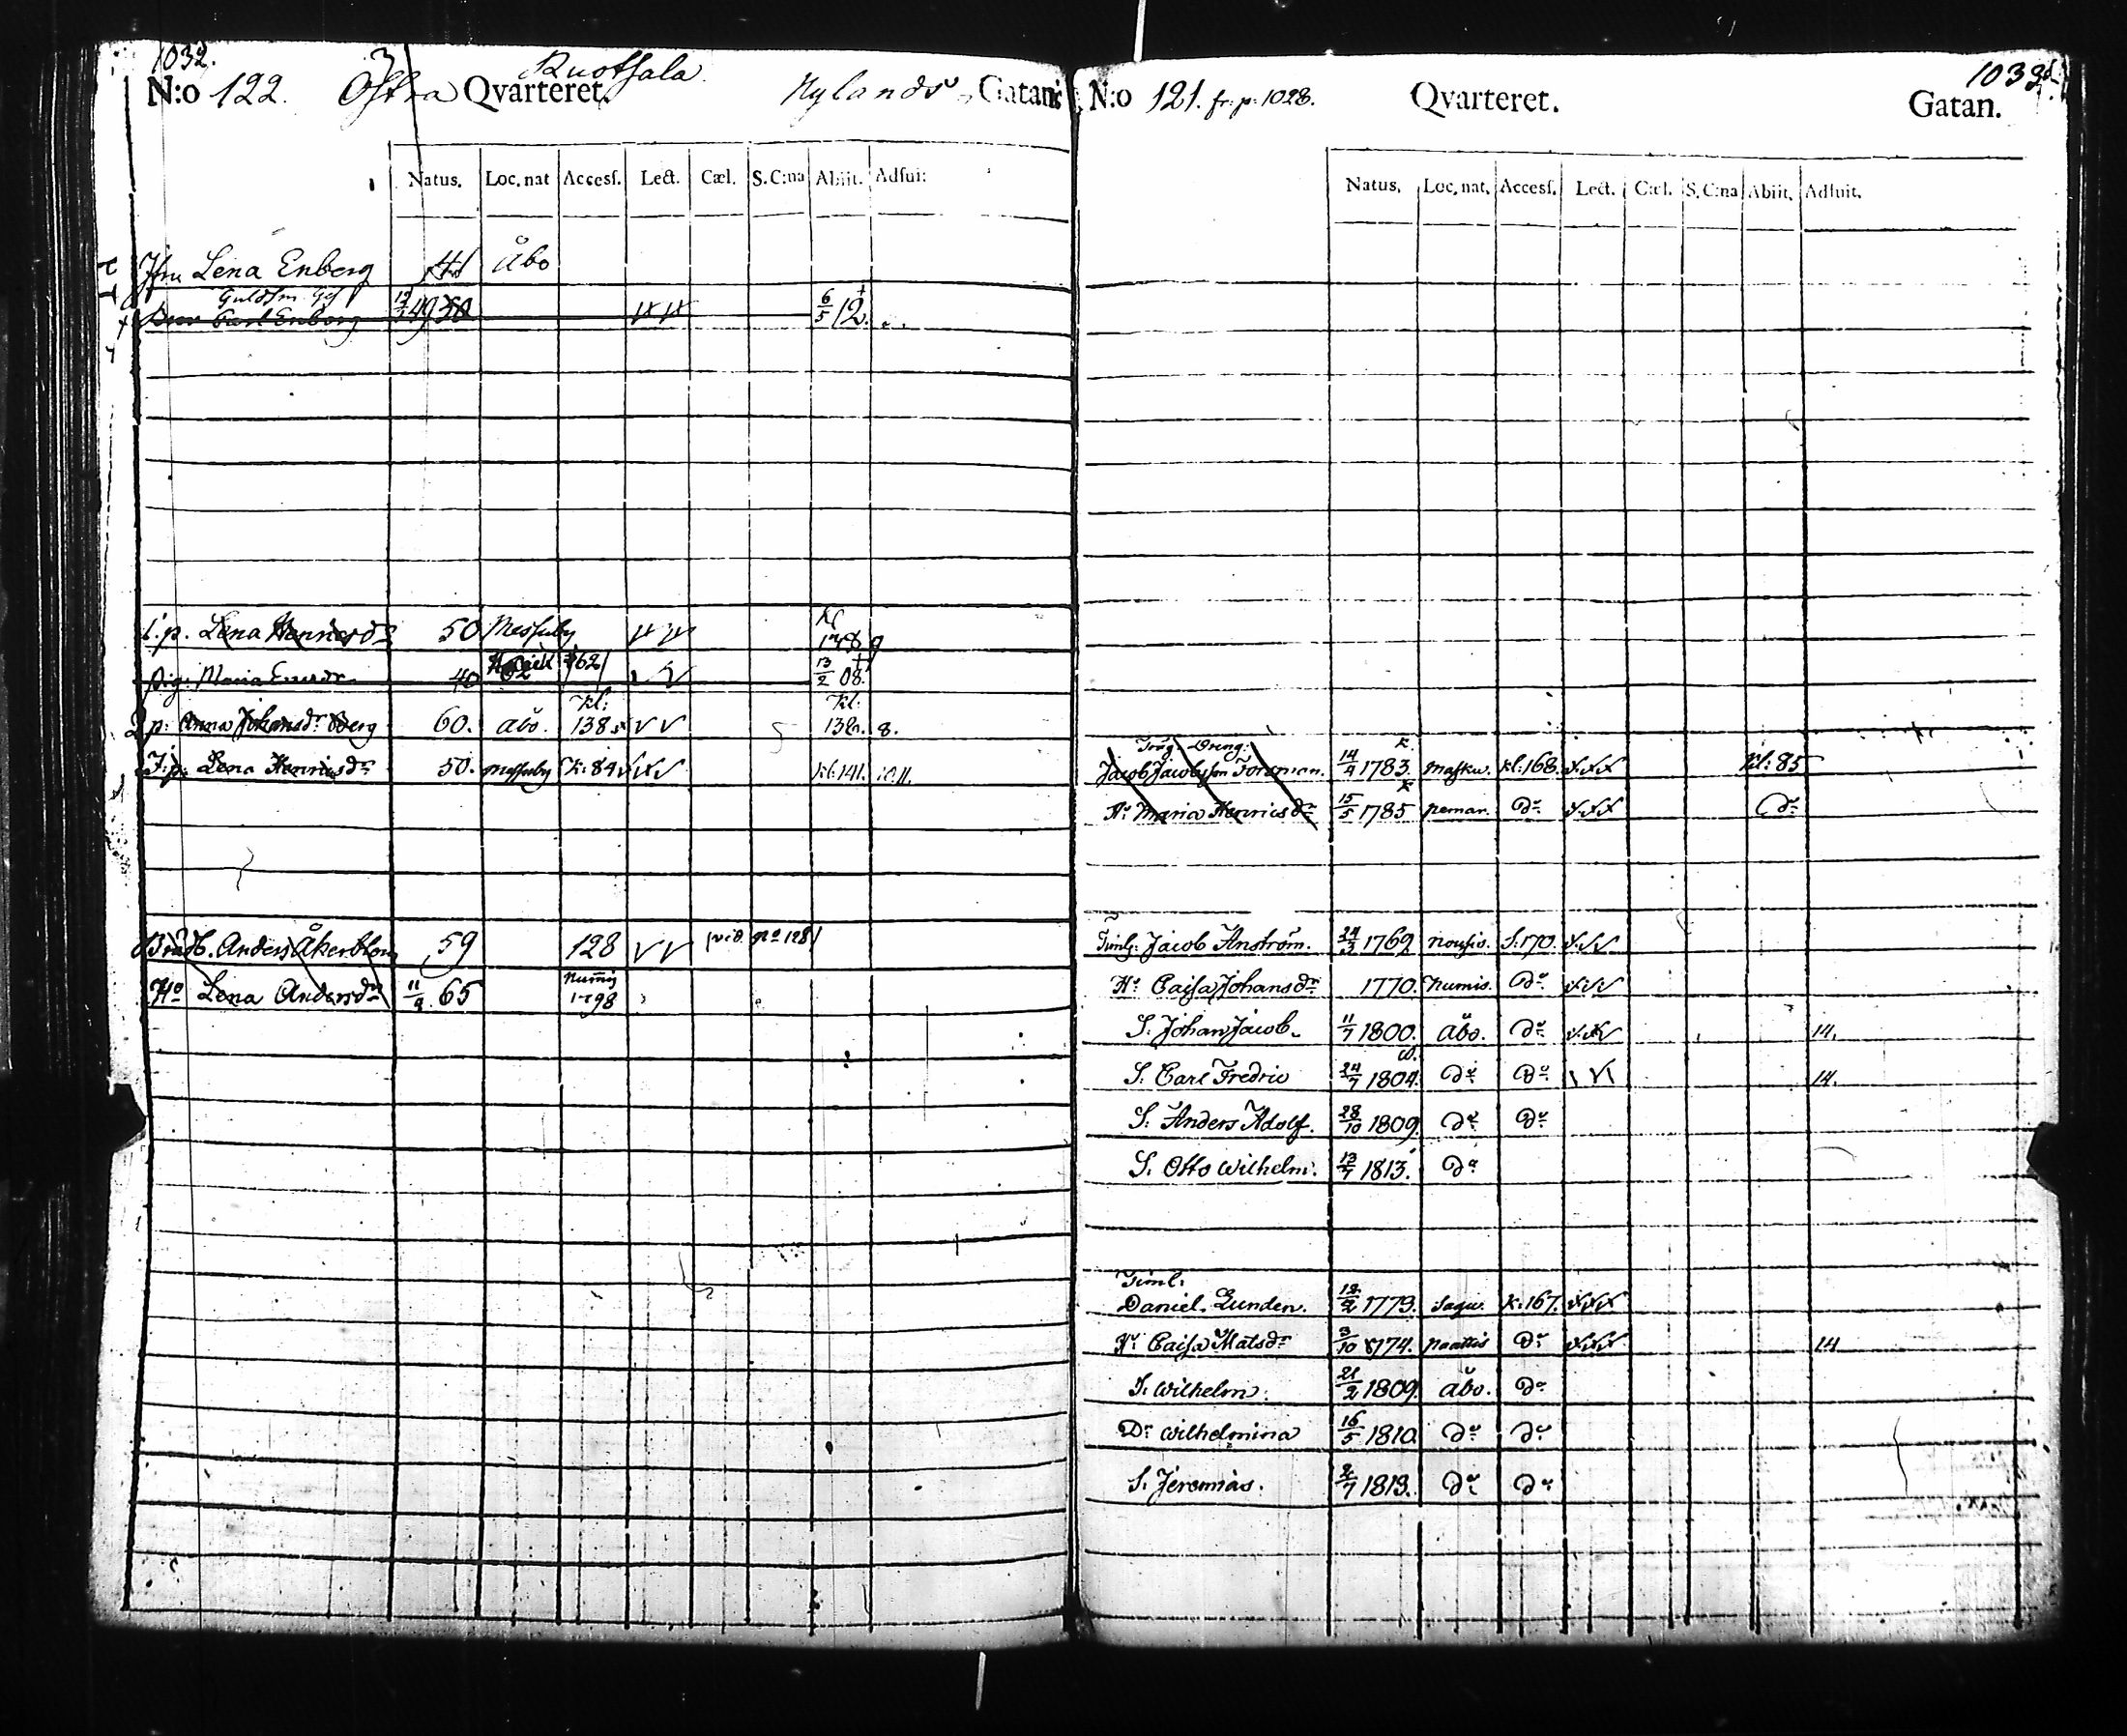 1032.
N:o 122. Östra Qvarteret. Ruotsala Nylands Gatan:
Natus. Loc. nat Access. Lect. Cæl. S. C:na Abiit. Adfui:
Jfru Lena Enberg Åbo
Guldsm. Ges
Carl Enberg 49 6/5 12.
i.p. Lena Henricsdr 50 Messuby Kl 148 9
pig. Maria 40 /62/ 13/2 08.
p: Anna Johansdr Berg 60. Åbo. Kl: 138 Kl. 132. 8.
I.p. Lena Henricsdr 50. Messuby K: 84 Kl. 141. 10.11.
Anders Åkerblom 59 128 /vid. No 128/
Ho Lena Andersdr 11/9 65 Numis 1798
1033.
N:o 121. fr. p. 1028. Qvarteret. Gatan.
Natus. Loc. nat. Access. Lect. Cæl. S. C:na Abiit. Adfuit.
Dreng:
Jacob Jacobsson Forsman. 14/4 1783. Masku. Kl: 168. Kl: 85
Hu Maria Henricsdr 15/5 1785 Pemar. Do Do
Timl: Jacob Anström. 1769 Nousis. S: 170.
Hu Caisa Johansdr 1770. Numis. Do
S. Johan Jacob. 11/7 1800. Åbo. Do 14.
S. Carl Fredric 24/7 1804. Do Do 14.
S. Anders Adolf. 28/10 1809. Do Do
S. Otto Wilhelm. 13/7 1813. Do
Timl:
Daniel Lunden. 12/2 1779. Sagu. K: 167.
Hu Caisa Matsdr 3/10 1774. Paattis Do 14
S. Wilhelm. 21/2 1809. Åbo. Do
Dr Wilhelmina 16/5 1810 Do Do
S. Jeremias. 2/7 1813. Do Do